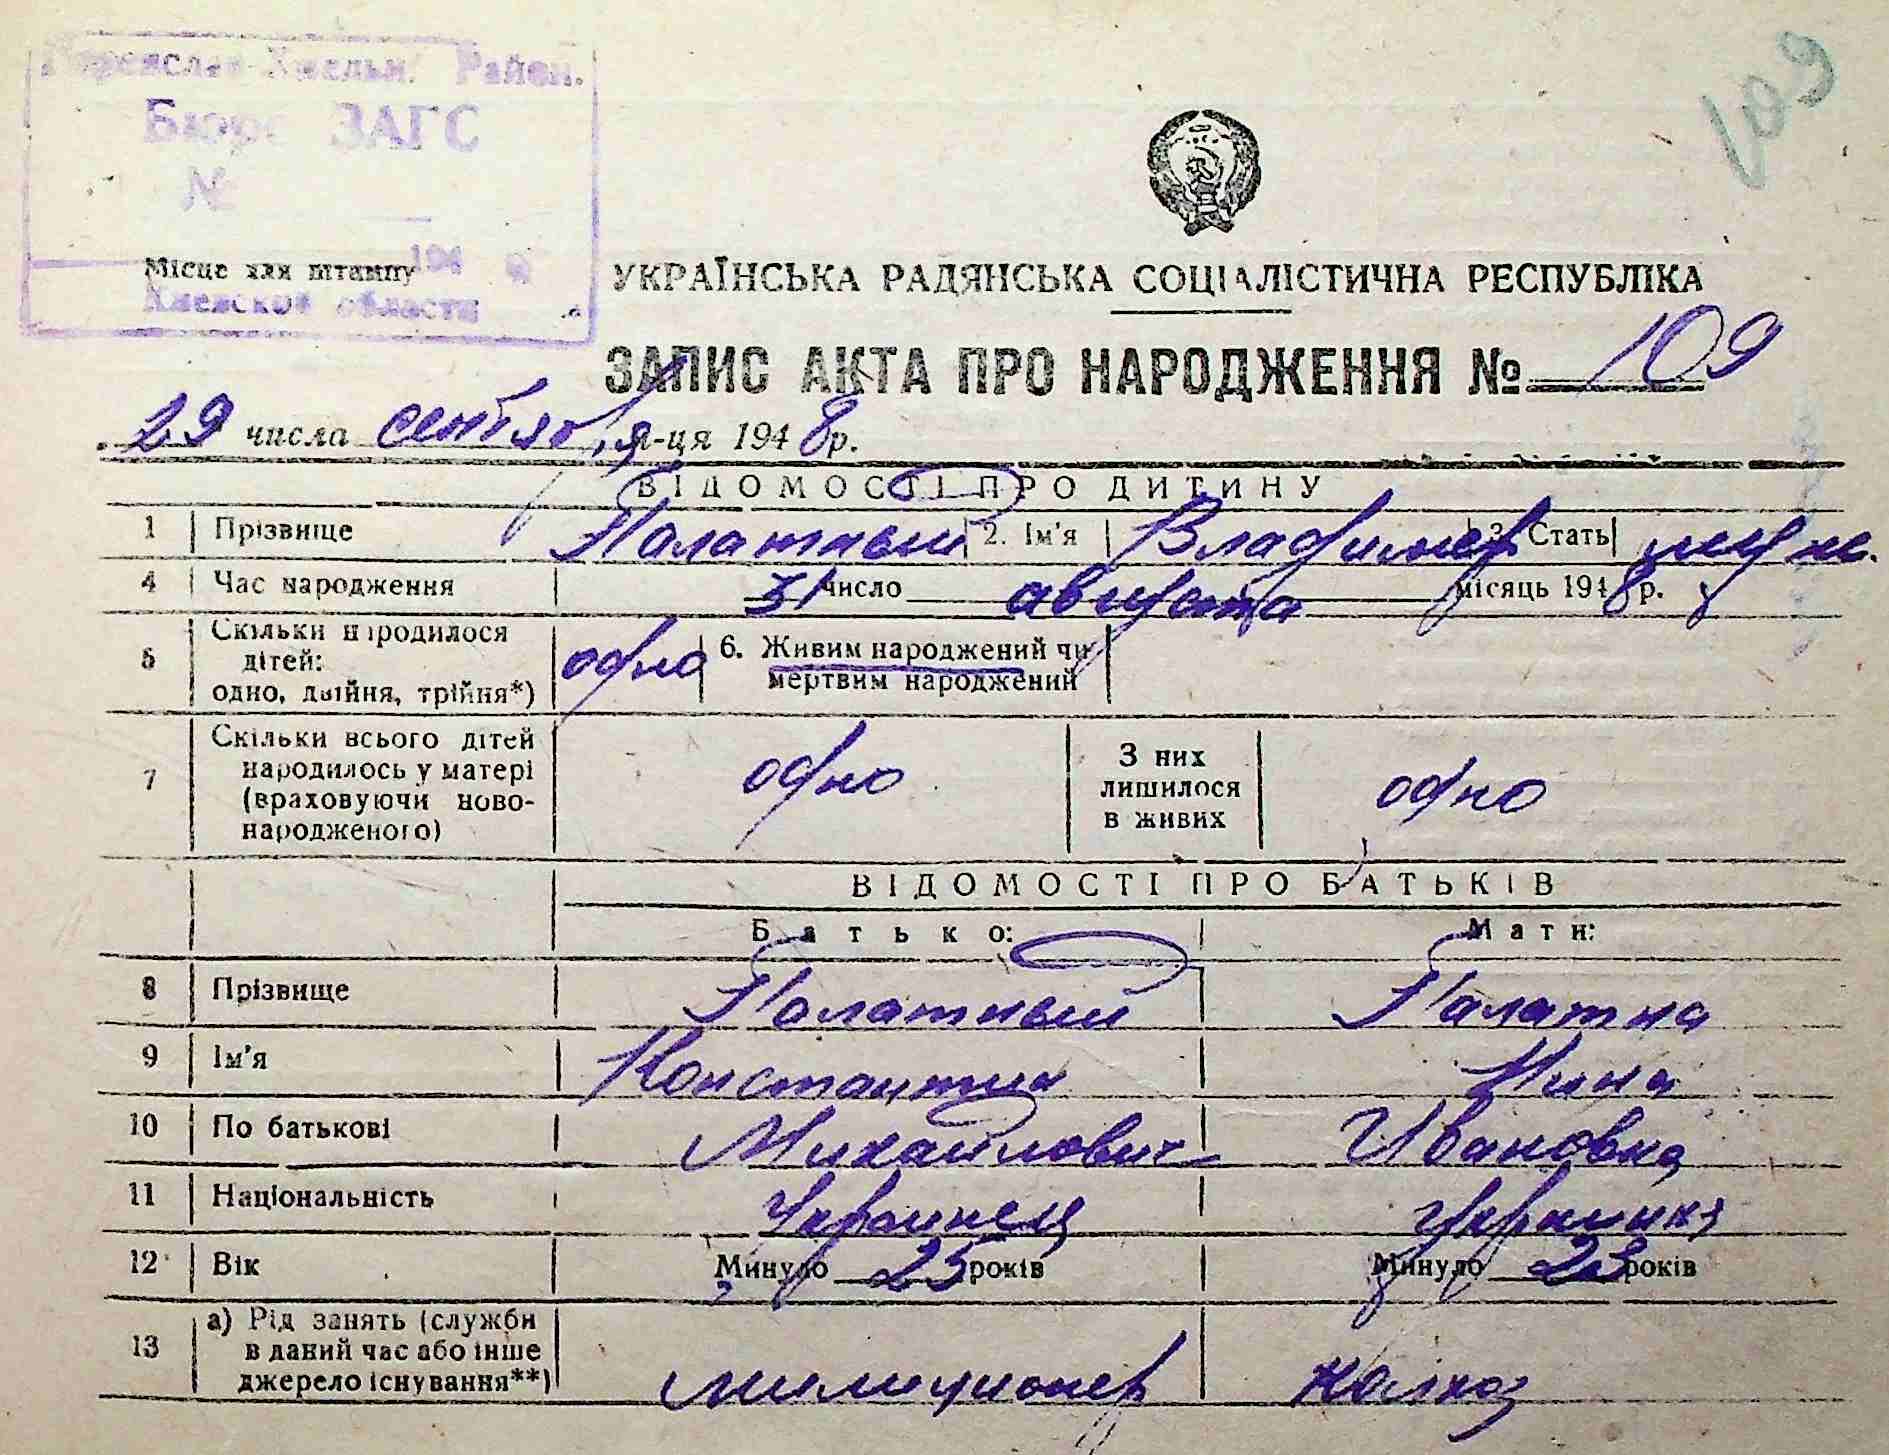 109
Район.
Бюро ЗАГС
№
194
Киевской области
Місце для штампу
УКРАЇНСЬКА РАДЯНСЬКА СОЦІАЛІСТИЧНА РЕСПУБЛІКА
ЗАПИС АКТА ПРО НАРОДЖЕННЯ № 109
29 числа сентября м-ця 1948 р.
ВІДОМОСТІ ПРО ДИТИНУ
1 Прізвище Палатный 2. Ім'я Владимир 3. Стать муж.
4 Час народження 31 число августа місяць 1948 р.
5 Скільки народилося дітей: одно, двійня, трійня*) одно 6. Живим народжений чи мертвим народжений
7 Скільки всього дітей народилось у матері (враховуючи новонародженого) одно З них лишилося в живих одно
ВІДОМОСТІ ПРО БАТЬКІВ
Батько: Мати:
8 Прізвище Палатный Палатна
9 Ім'я Константин Нина
10 По батькові Михайлович Ивановна
11 Національність Украинец Украинка
12 Вік Минуло 25 років Минуло 23 років
13 а) Рід занять (служби в даний час або інше джерело існування**) милиционер колхоз